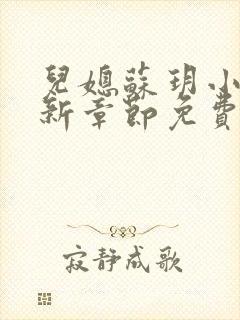 兒媳蘇玥小
新章節免費
寂静成歌